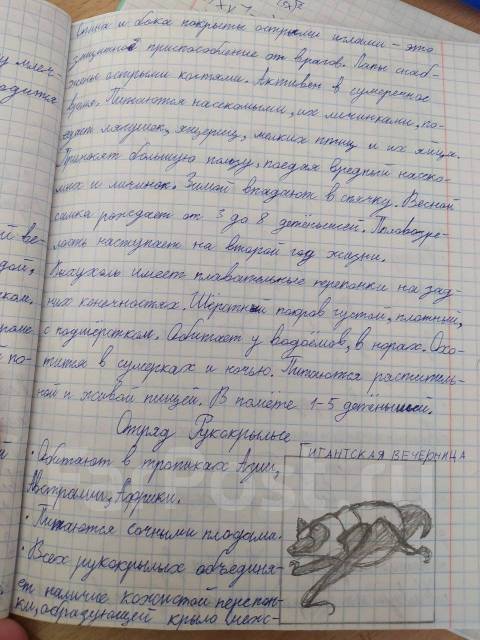 Спина и бока покрыты острыми иглами – это
защитное приспособление от врагов. Лапы снаб-
жены острыми когтями. Активен в сумеречное
время. Питаются насекомыми, их личинками, по-
едает лягушек, ящериц, мелких птиц и их яйца.
Приносят большую пользу, поедая вредных насеко-
мых и личинок. Зимой впадают в спячку. Весной
самка рождает от 3 до 8 детёнышей. Половозре-
лость наступает на второй год жизни.
Выхухоль имеет плавательные перепонки на зад-
них конечностях. Шёрстный покров густой, плотный,
с подшёрстком. Обитает у водоёмов, в норах. Охо-
тится в сумерках и ночью. Питаются раститель-
ной и живой пищей. В помёте 1-5 детёнышей.
Отряд Рукокрылые
• Обитают в тропиках Азии,
Австралии, Африки.
• Питаются сочными плодами.
• Всех рукокрылых объединя-
ет наличие кожистой перепон-
ки, образующей крыло
ГИГАНТСКАЯ ВЕЧЕРНИЦА